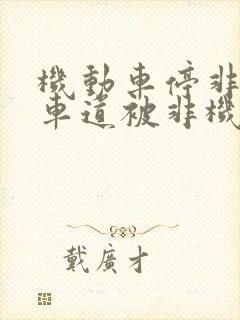 機動車停非
車道被非機
戴廣才